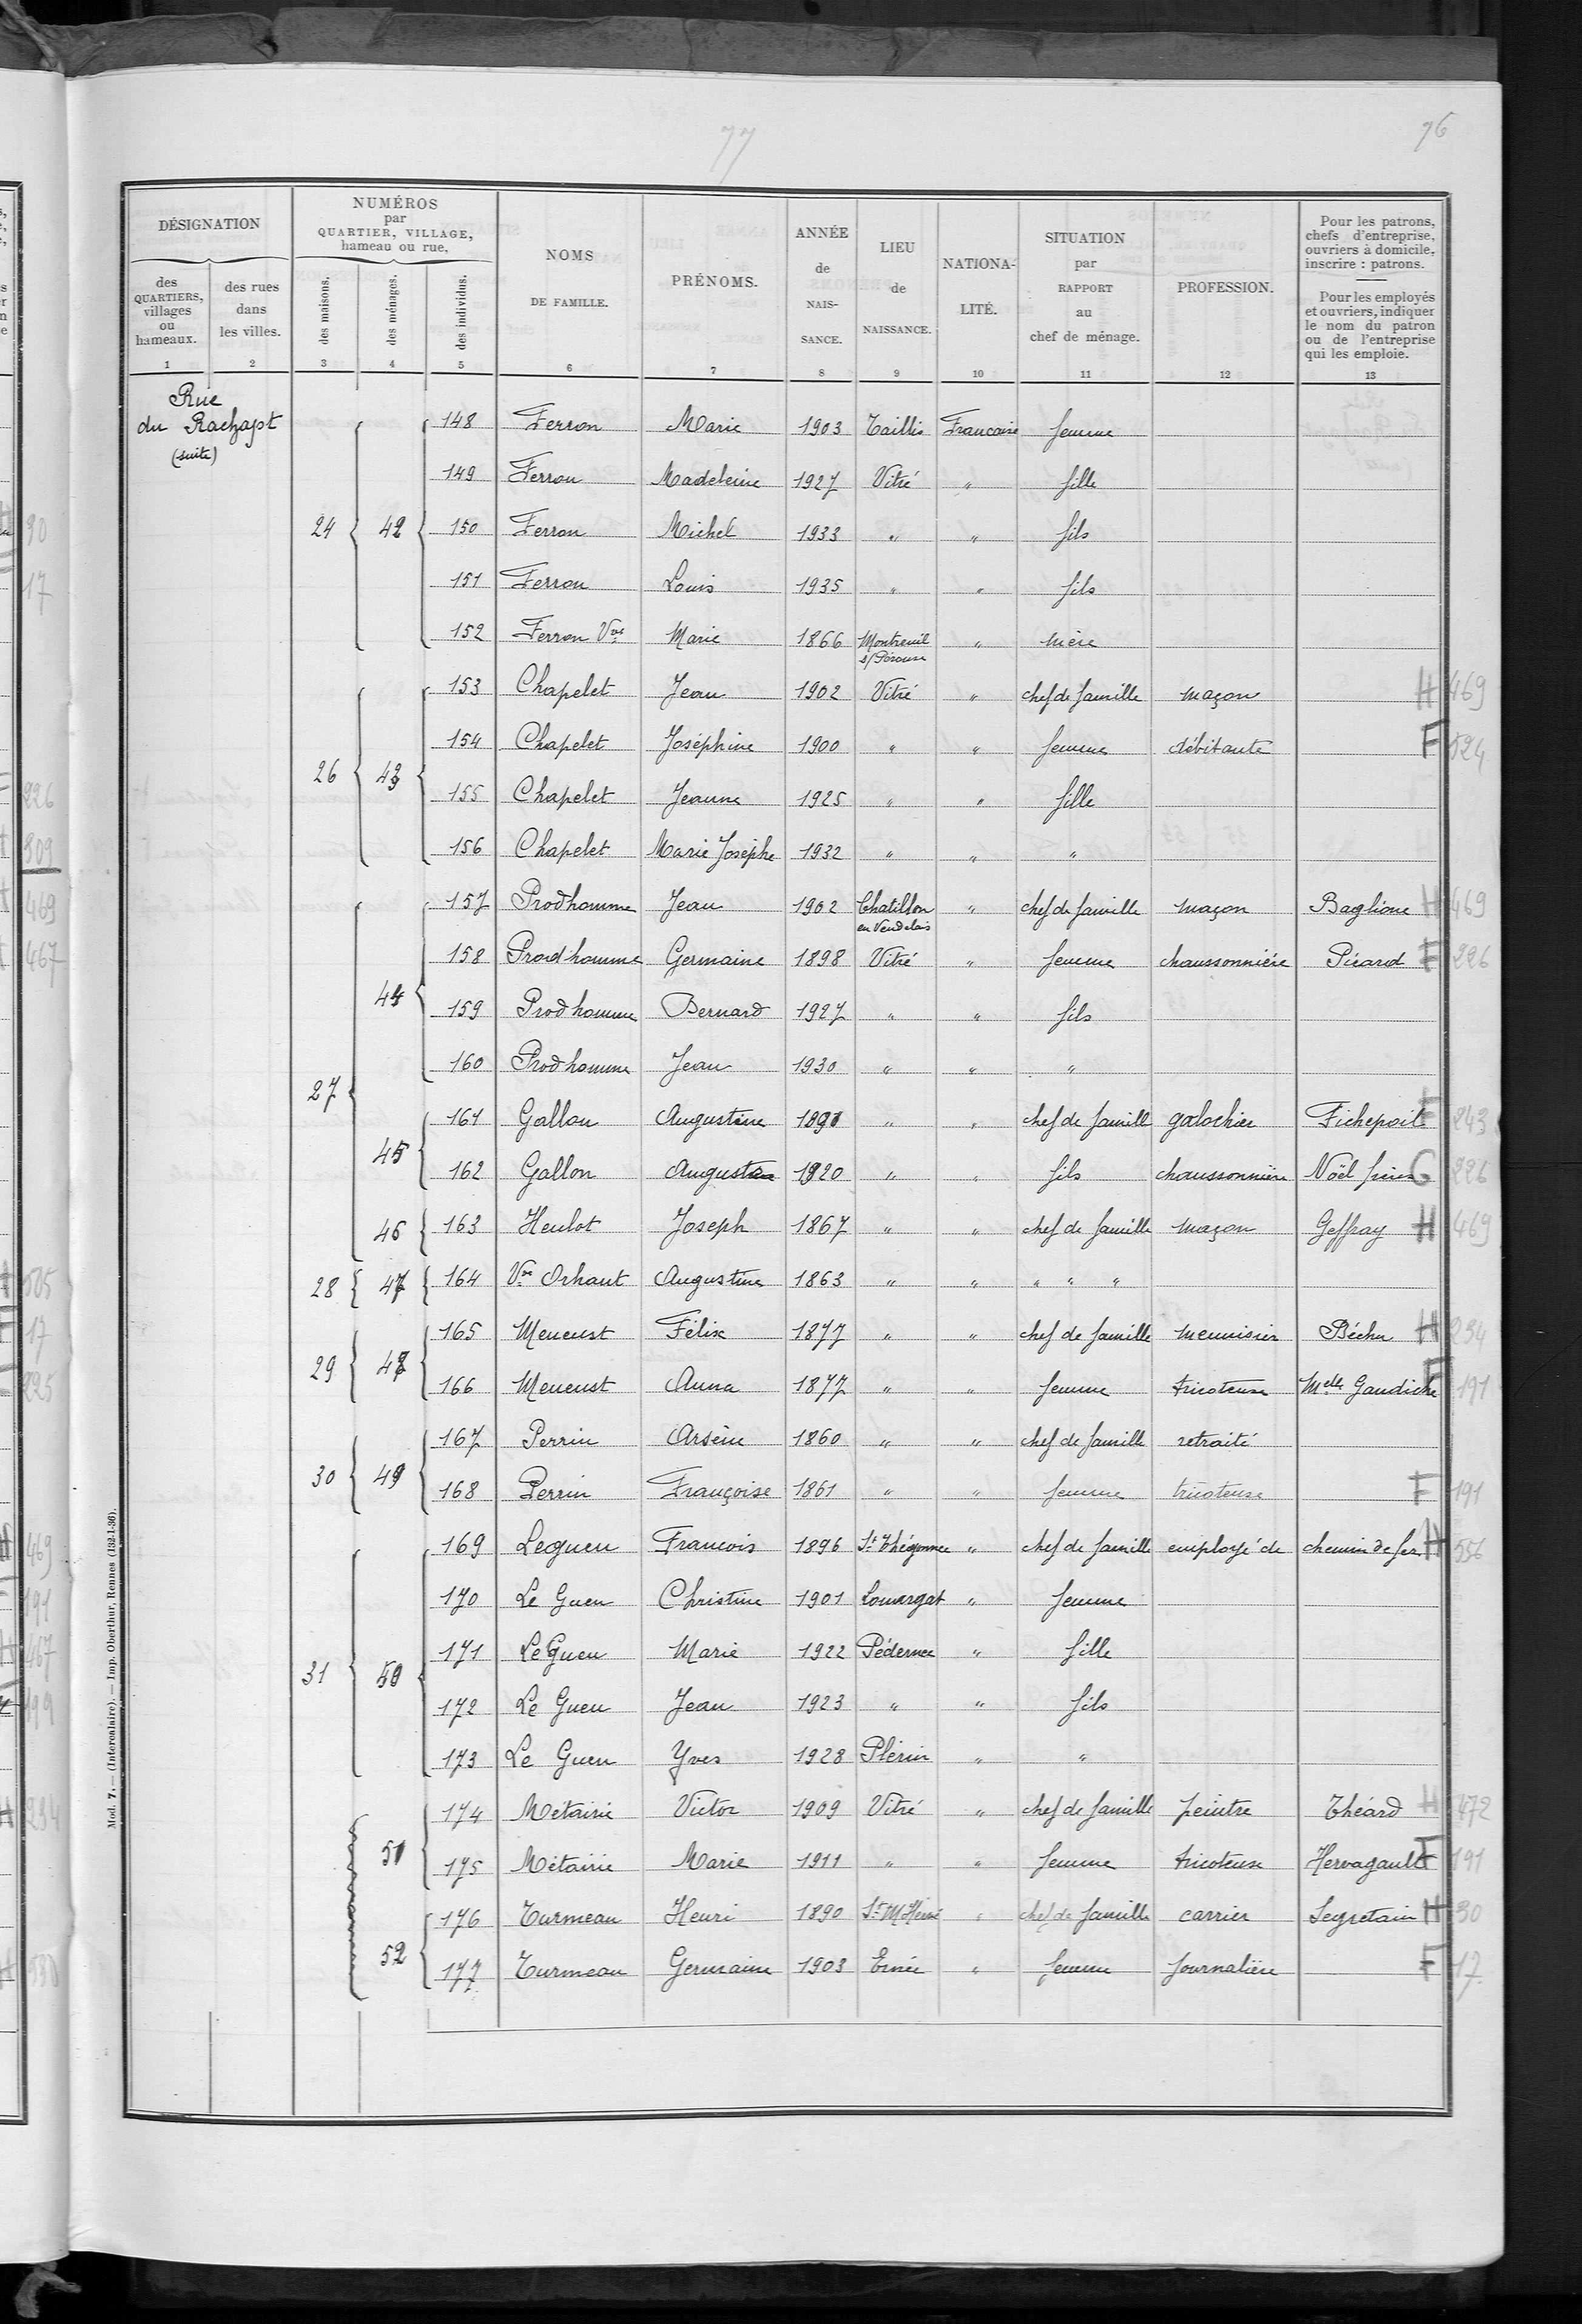 77
76
DÉSIGNATION
NUMÉROS
par
QUARTIER, VILLAGE,
hameau ou rue.
NOMS
DE FAMILLE.
PRÉNOMS.
ANNÉE
de
NAIS-
SANCE.
LIEU
de
NAISSANCE.
NATIONA-
LITÉ.
SITUATION
par
RAPPORT
au
chef de ménage.
PROFESSION.
Pour les patrons,
chefs d'entreprise,
ouvriers à domicile,
inscrire : patrons.
Pour les employés
et ouvriers, indiquer
le nom du patron
ou de l'entreprise
qui les emploie.
des
QUARTIERS,
villages
ou
hameaux.
des rues
dans
les villes.
des maisons.
des ménages.
des individus.
1 2 3 4 5 6 7 8 9 10 11 12 13
Rue
du Rachapt
(suite)
148 Ferron Marie 1903 Taillis Francaise femme
149 Ferron Madeleine 1927 Vitré " fille
24 42 150 Ferron Michel 1933 " " fils
151 Ferron Louis 1935 " " fils
152 Ferron Vve Marie 1866 Montreuil s/Pérouse " mère
153 Chapelet Jean 1902 Vitré " chef de famille maçon H 469
154 Chapelet Joséphine 1900 " " femme débitante F 524
26 43 155 Chapelet Jeanne 1925 " " fille
156 Chapelet Marie Josèphe 1932 " " "
157 Prodhomme Jean 1902 Chatillon en Vendelais " chef de famille maçon Baglione H 469
158 Prodhomme Germaine 1898 Vitré " femme chaussonnière Picard F 226
44 159 Prodhomme Bernard 1927 " " fils
160 Prodhomme Jean 1930 " " "
27
161 Gallon Augustine 1891 " " chef de famill galochier Fichepoil F 243
45 162 Gallon August 1920 " " fils chaussonnière Noël frères G 226
46 163 Heulot Joseph 1867 " " chef de famille maçon Geffray H 469
28 47 164 Vve Orhant Augustine 1863 " " " " "
165 Meneust Félix 1877 " " chef de famille menuisier Béchu H 234
29 48 166 Meneust Anna 1877 " " femme tricoteuse Melle Gaudiche F 191
167 Perrin Arsène 1860 " " chef de famille retraité
30 49 168 Perrin Françoise 1861 " " femme tricoteuse F 191
169 Leguen Francois 1896 St Thégonnec " chef de famille employé de chemin de fer H 556
170 Le Guen Christine 1901 Louargat " femme
31 50 171 Le Guen Marie 1922 Pédernec " fille
172 Le Guen Jean 1923 " " fils
173 Le Guen Yves 1928 Plérin " "
174 Métairie Victor 1909 Vitré " chef de famille peintre Théard H 472
51 175 Métairie Marie 1911 " " femme tricoteuse Hervagault F 191
176 Turmeau Henri 1890 St M'Hervé " chef de famille carrier Segretain H 30
52 177 Turmeau Germaine 1903 Ernée " femme journalière F 17
Mod. 7. — (Intercalaire). — Imp. Oberthur, Rennes (132-1-36).